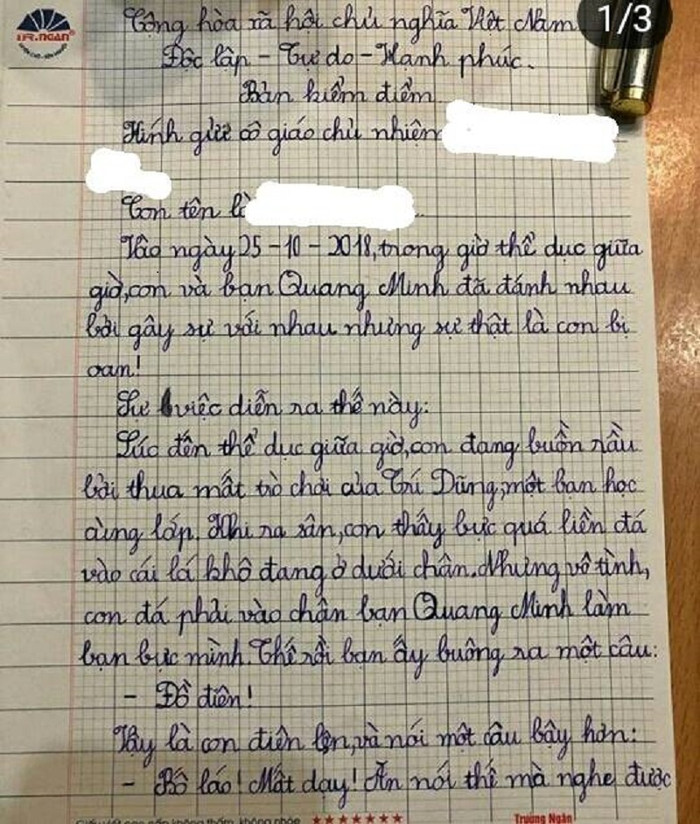 1/3
TR.NGAN®
Cộng hòa xã hội chủ nghĩa Việt Nam
Độc lập - Tự do - Hạnh phúc.
Bản kiểm điểm
Kính gửi cô giáo chủ nhiệm
Con tên là
Vào ngày 25-10-2018, trong giờ thể dục giữa
giờ, con và bạn Quang Minh đã đánh nhau
bởi gây sự với nhau nhưng sự thật là con bị
oan!
Sự việc diễn ra thế này:
Lúc đến thể dục giữa giờ, con đang buồn rầu
bởi thua mất trò chơi của Trí Dũng, một bạn học
cùng lớp. Khi ra sân, con thấy bực quá liền đá
vào cái lá khô đang ở dưới chân. Nhưng vô tình,
con đá phải vào chân bạn Quang Minh làm
bạn bực mình. Thế rồi bạn ấy buông ra một câu:
- Đồ điên!
Vậy là con điên lên, và nói một câu bậy hơn:
- Bố láo! Mất dạy! Ăn nói thế mà nghe được
Trường Ngân